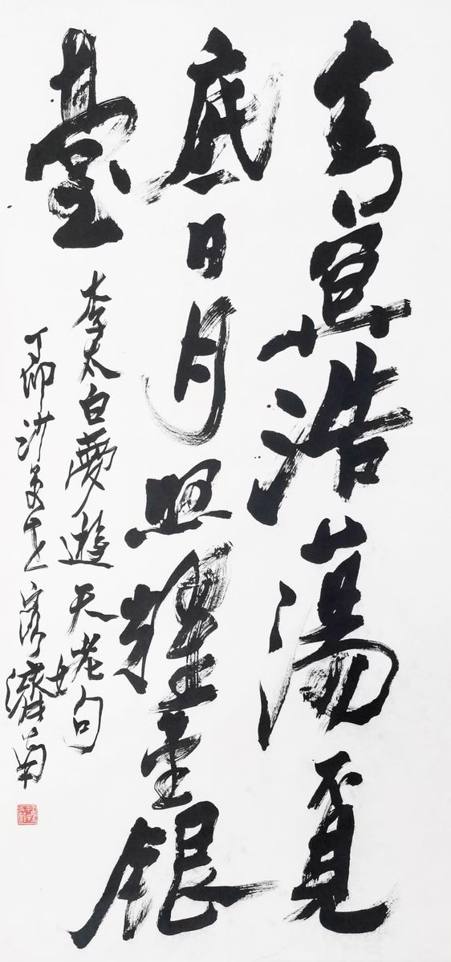 青冥浩蕩不見
底日月照耀金銀
臺
李太白夢遊天姥句
丁卯沙濟南